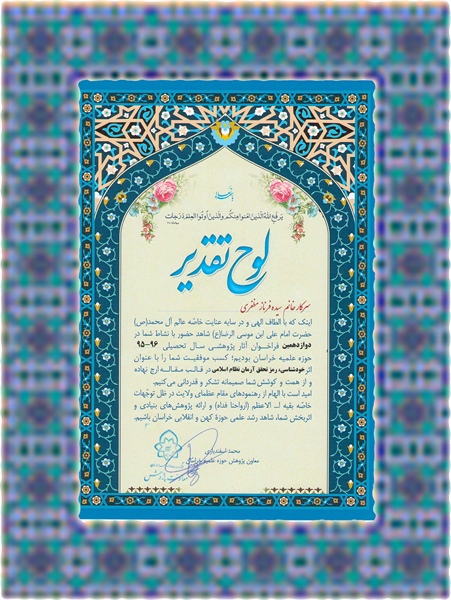 باسمه تعالی
یَرفَعِ اللهُ الَّذینَ امَنوا مِنکُم وَالَّذینَ اُوتُوا العِلمَ دَرَجات
لوح تقدیر
سرکار خانم سیده فرناز مظفری
اینک که با الطاف الهی و در سایه عنایت خاصّه عالم آل محمد(ص)
حضرت امام علی ابن موسی الرضا(ع) شاهد حضور با نشاط شما در
دوازدهمین فراخوان آثار پژوهشی سال تحصیلی ۹۶-۹۵
حوزه علمیه خراسان بودیم؛ کسب موفقیت شما را با عنوان
اثر خودشناسی، رمز تحقق آرمان نظام اسلامی در قالب مقاله ارج نهاده
و از همت و کوشش شما صمیمانه تشکر و قدردانی می‌کنیم.
امید است با الهام از رهنمودهای مقام عظمای ولایت در ظل توجّهات
خاصّه بقیه ا... الاعظم (ارواحنا فداه) و ارائه پژوهش‌های بنیادی و
اثربخش شما، شاهد رشد علمی حوزهٔ کهن و انقلابی خراسان باشیم.
محمد اسفندیاری
معاون پژوهش حوزه علمیه خراسان